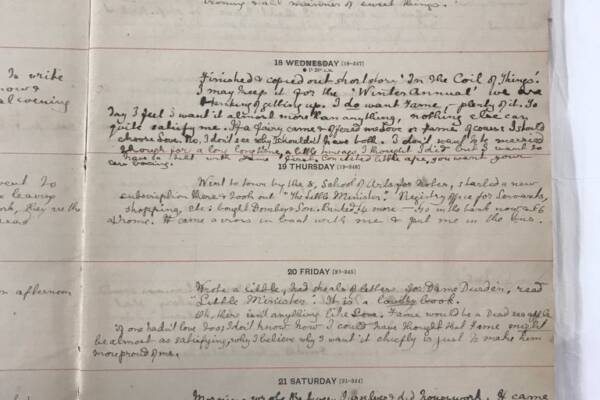 To write
now &
al evening
18 WEDNESDAY [18-347]
Finished & copied out short story 'In the Coil of Things'.
I may keep it for the 'Winter Annual' we are
thinking of getting up. I do want Fame — plenty of it. To
day I feel I want it almost more than anything, nothing else can
quite satisfy me. If a fairy came & offered me love or fame of course I should
choose love. No, I don't see why I shouldn't have both. I don't want to be married
though for a long long time, I thought I did but I want to
have to built with Fame first. Conceited little ape, you want your
ears boxing.
went to
leaving
work, they are the
19 THURSDAY [19-346]
Went to town by the 2, School of Arts for, started a new
subscription there & took out "The Little Minister". Registry Office for Servants,
shopping, etc. bought Dombey & Son. Banked £4 more —
at home. H came across in boat with me & put me in the bus.
20 FRIDAY [20-345]
Wrote a little, had heaps of letters for Dame Durden, read
"Little Minister". It is a lovely book.
Oh, there isn't anything like Love. Fame would be a Dead sea apple
if one hadn't love too, I don't know how I could have thought that Fame might
be almost as satisfying, why I believe why I want it chiefly is just to make them
more proud of me.
on afternoon
21 SATURDAY [21-344]
H came